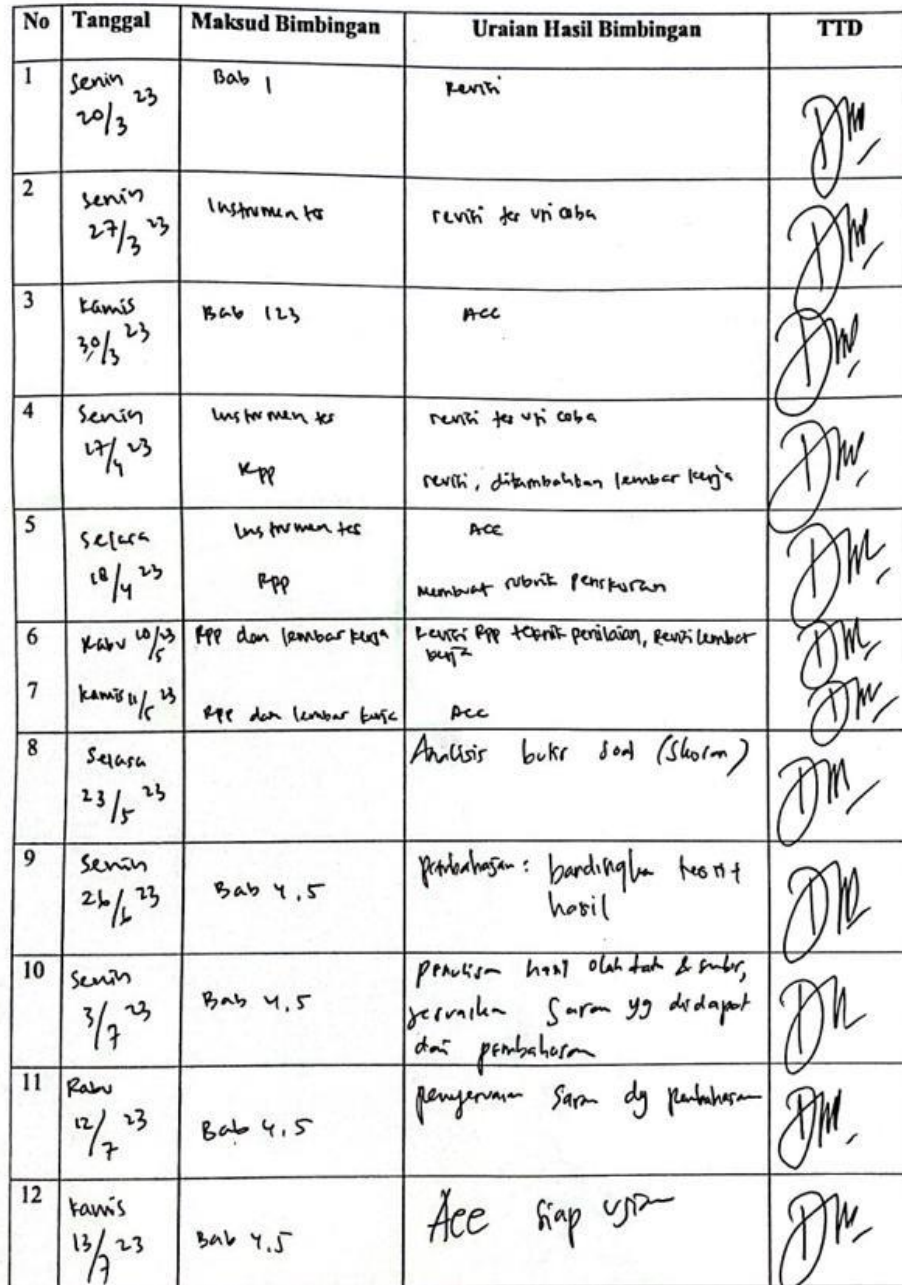 No Tanggal Maksud Bimbingan Uraian Hasil Bimbingan TTD
1 Senin 20/3 23 Bab 1 Revisi
2 Senin 27/3 23 Instrumen tes revisi tes uji coba
3 Kamis 30/3 23 Bab 123 ACC
4 Senin 27/4 23 Instrumen tes revisi tes uji coba
Rpp revisi, ditambahkan lembar kerja
5 Selasa 18/4 23 Instrumen tes ACC
Rpp Membuat rubrik penskoran
6 Rabu 10/5 23 Rpp dan lembar kerja Revisi Rpp teknik penilaian, Revisi lembar
kerja
7 Kamis 11/5 23 Rpp dan lembar kerja Acc
8 Selasa 23/5 23 Analisis butir soal (Skoran)
9 Senin 26/6 23 Bab 4.5 pembahasan: bandingkan teori +
hasil
10 Senin 3/7 23 Bab 4.5 penulisan hasil olah &
sesuaikan Saran yg didapat
dari pembahasan
11 Rabu 12/7 23 Bab 4.5 penyesuaian Saran dg pembahasan
12 Kamis 13/7 23 Bab 4.5 Acc Siap ujian